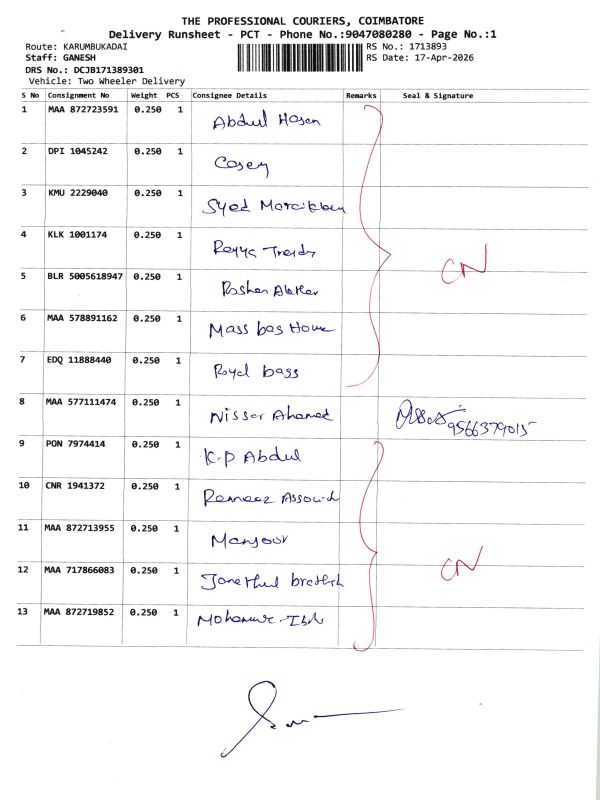 THE PROFESSIONAL COURIERS, COIMBATORE
Delivery Runsheet - PCT - Phone No.:9047080280 - Page No.:1
Route: KARUMBUKADAI RS No.: 1713893
Staff: GANESH RS Date: 17-Apr-2026
DRS No.: DCJB171389301
Vehicle: Two Wheeler Delivery
S No Consignment No Weight PCS Consignee Details Remarks Seal & Signature
1 MAA 872723591 0.250 1 Abdul Hasan
2 DPI 1045242 0.250 1 Casey
3 KMU 2229040 0.250 1 Syed
4 KLK 1001174 0.250 1
CN
5 BLR 5005618947 0.250 1 Roshan
6 MAA 578891162 0.250 1 Mass bag Home
7 EDQ 11888440 0.250 1 Royal bags
8 MAA 577111474 0.250 1 Nisser Ahamed 9566379015
9 PON 7974414 0.250 1 K.P Abdul
10 CNR 1941372 0.250 1
11 MAA 872713955 0.250 1 Mansoor
CN
12 MAA 717866083 0.250 1
13 MAA 872719852 0.250 1